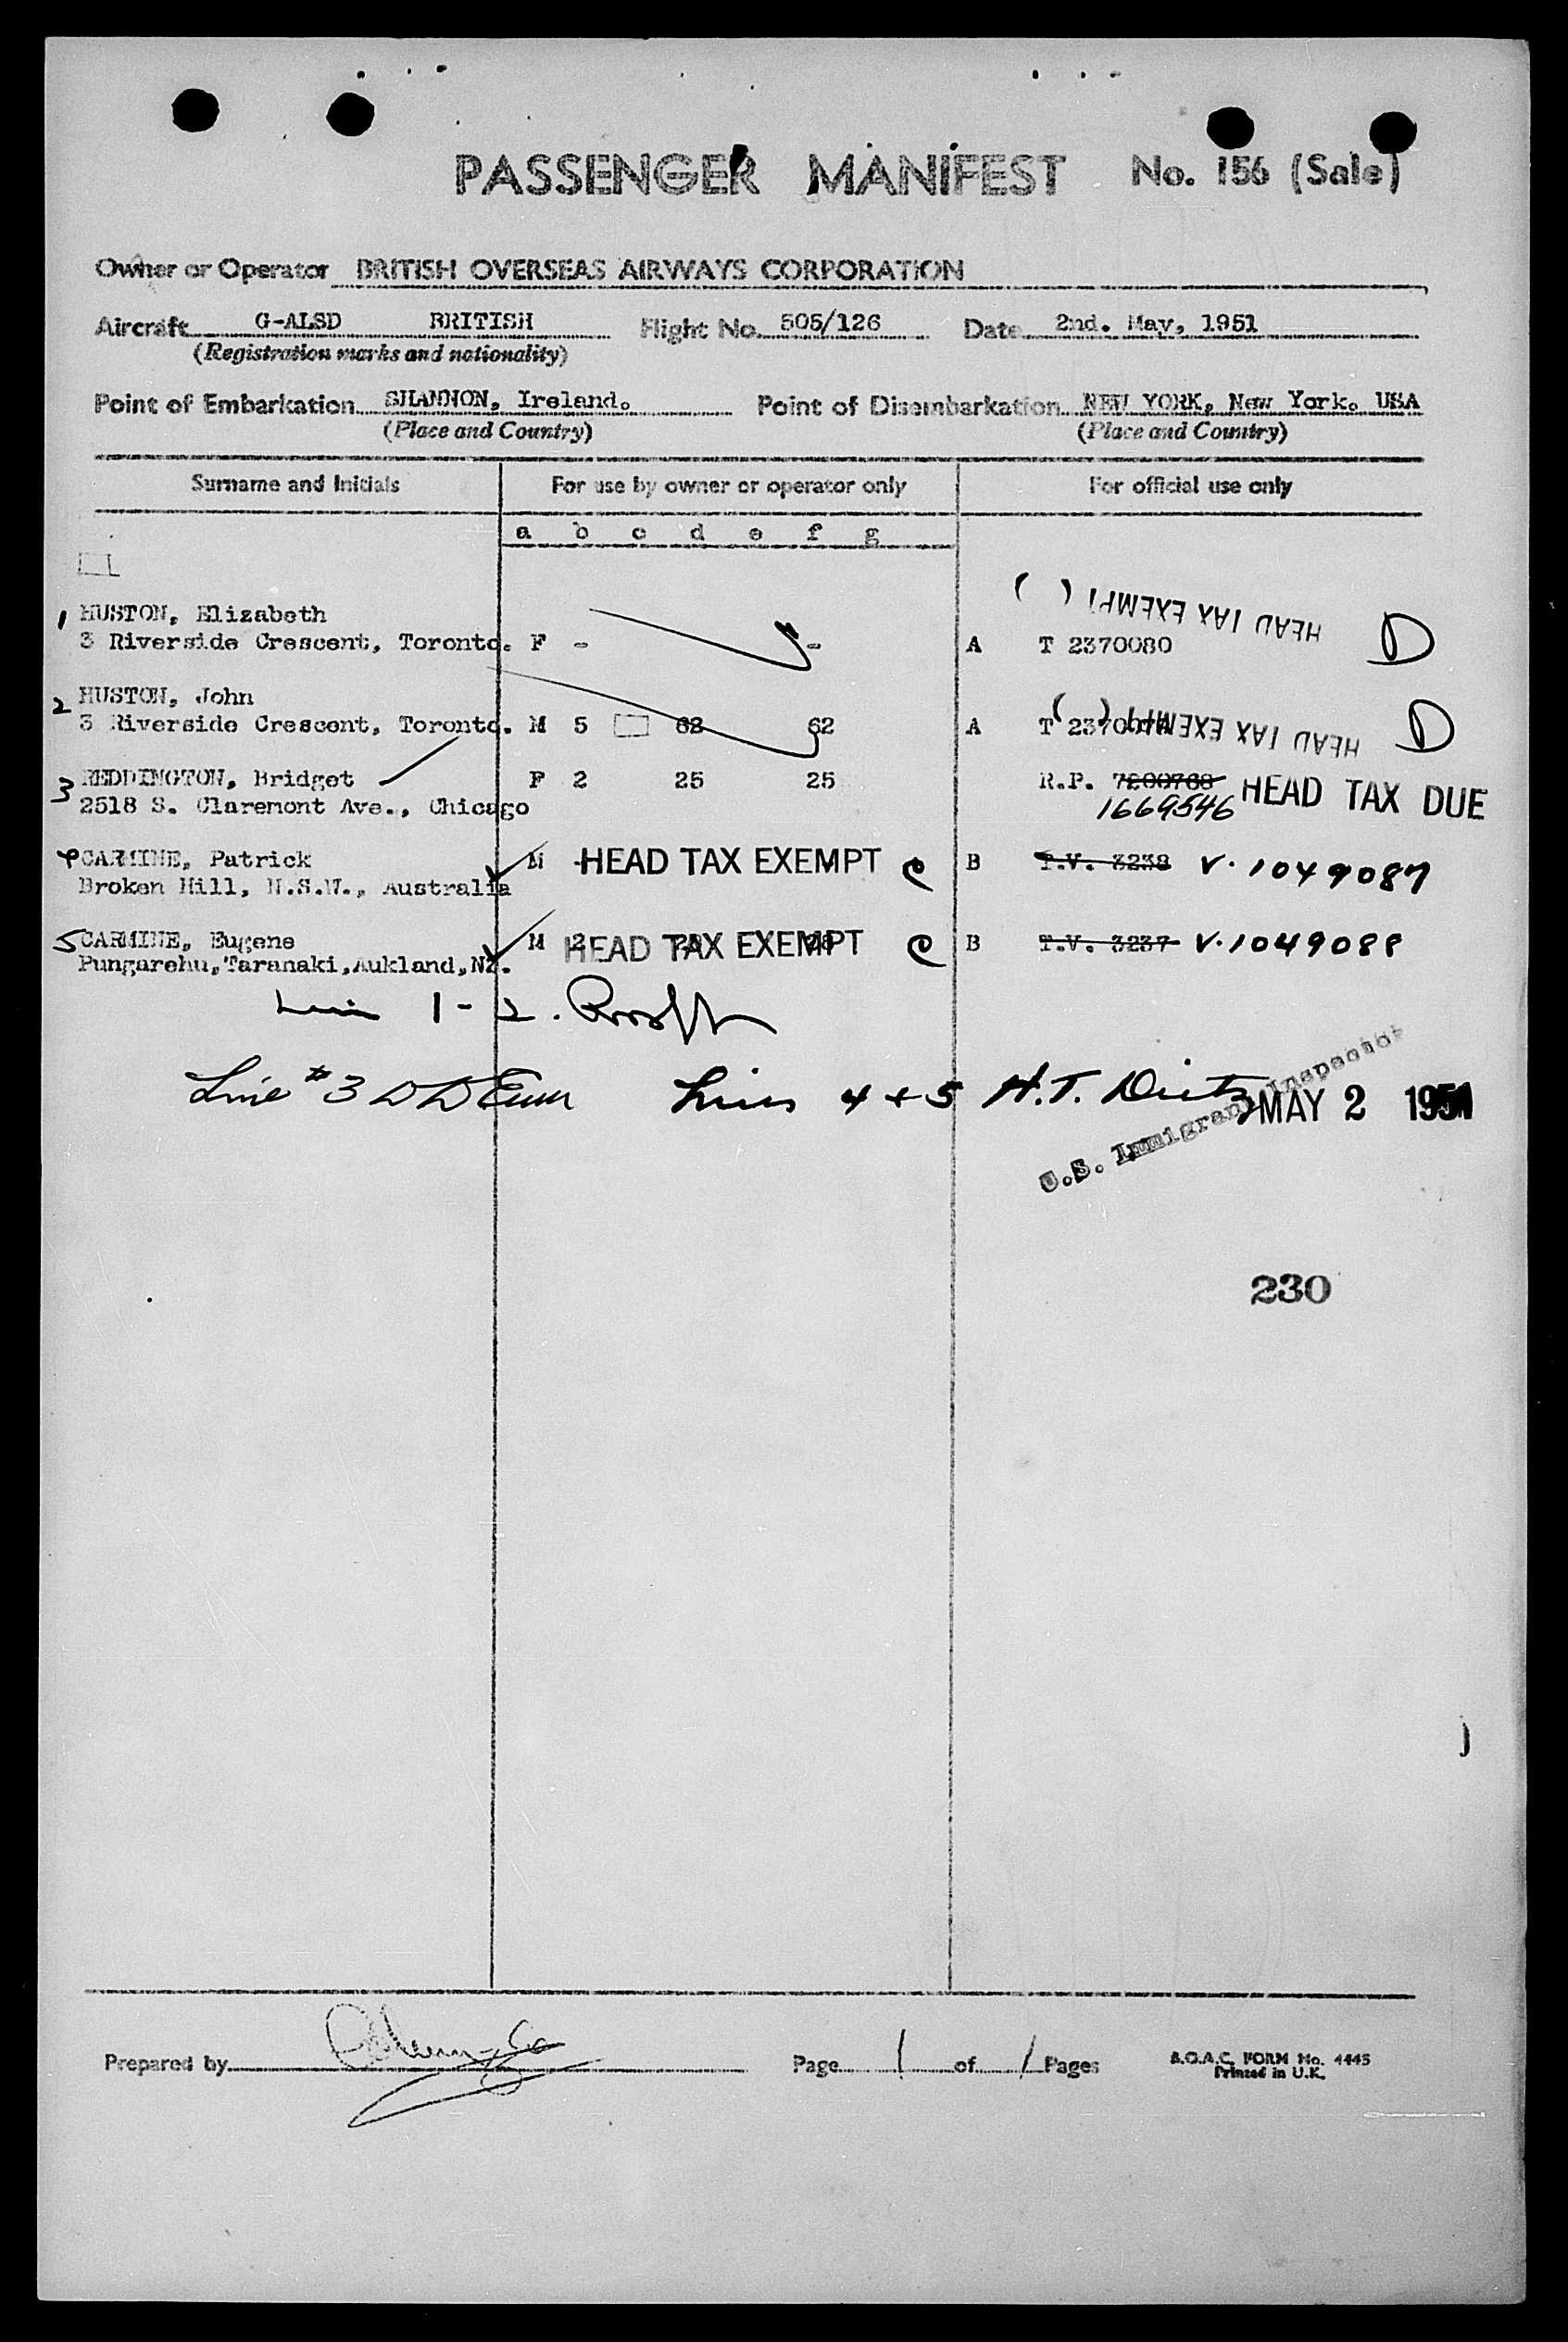 PASSENGER MANIFEST No. 156 (Sale)
Owner or Operator BRITISH OVERSEAS AIRWAYS CORPORATION
Aircraft G-ALSD BRITISH Flight No. 505/126 Date 2nd. May, 1951
(Registration marks and nationality)
Point of Embarkation SHANNON, Ireland. Point of Disembarkation NEW YORK, New York. USA
(Place and Country) (Place and Country)
Surname and Initials For use by owner or operator only For official use only
a b c d e f g
1 HUSTON, Elizabeth HEAD TAX EXEMPT ( )
3 Riverside Crescent, Toronto. F - - A T 2370080 D
2 HUSTON, John
3 Riverside Crescent, Toronto. M 5 62 62 A HEAD TAX EXEMPT ( ) D
3 REDDINGTON, Bridget F 2 25 25 R.P. 7200768 HEAD TAX DUE
2518 S. Claremont Ave., Chicago 1669546
4 CARMINE, Patrick M - HEAD TAX EXEMPT C B T.V. 3238 V. 1049087
Broken Hill, N.S.W., Australia
5 CARMINE, Eugene M 2 HEAD TAX EXEMPT 28 C B T.V. 3237 V. 1049088
Pungarehu, Taranaki, Aukland, NZ.
1 - 2.
Line #3 Lines 4 + 5 H.T. Dietz MAY 2 1951
U.S. Immigrant Inspector
230
Prepared by Page 1 of 1 Pages B.O.A.C. FORM No. 4445
Printed in U.K.